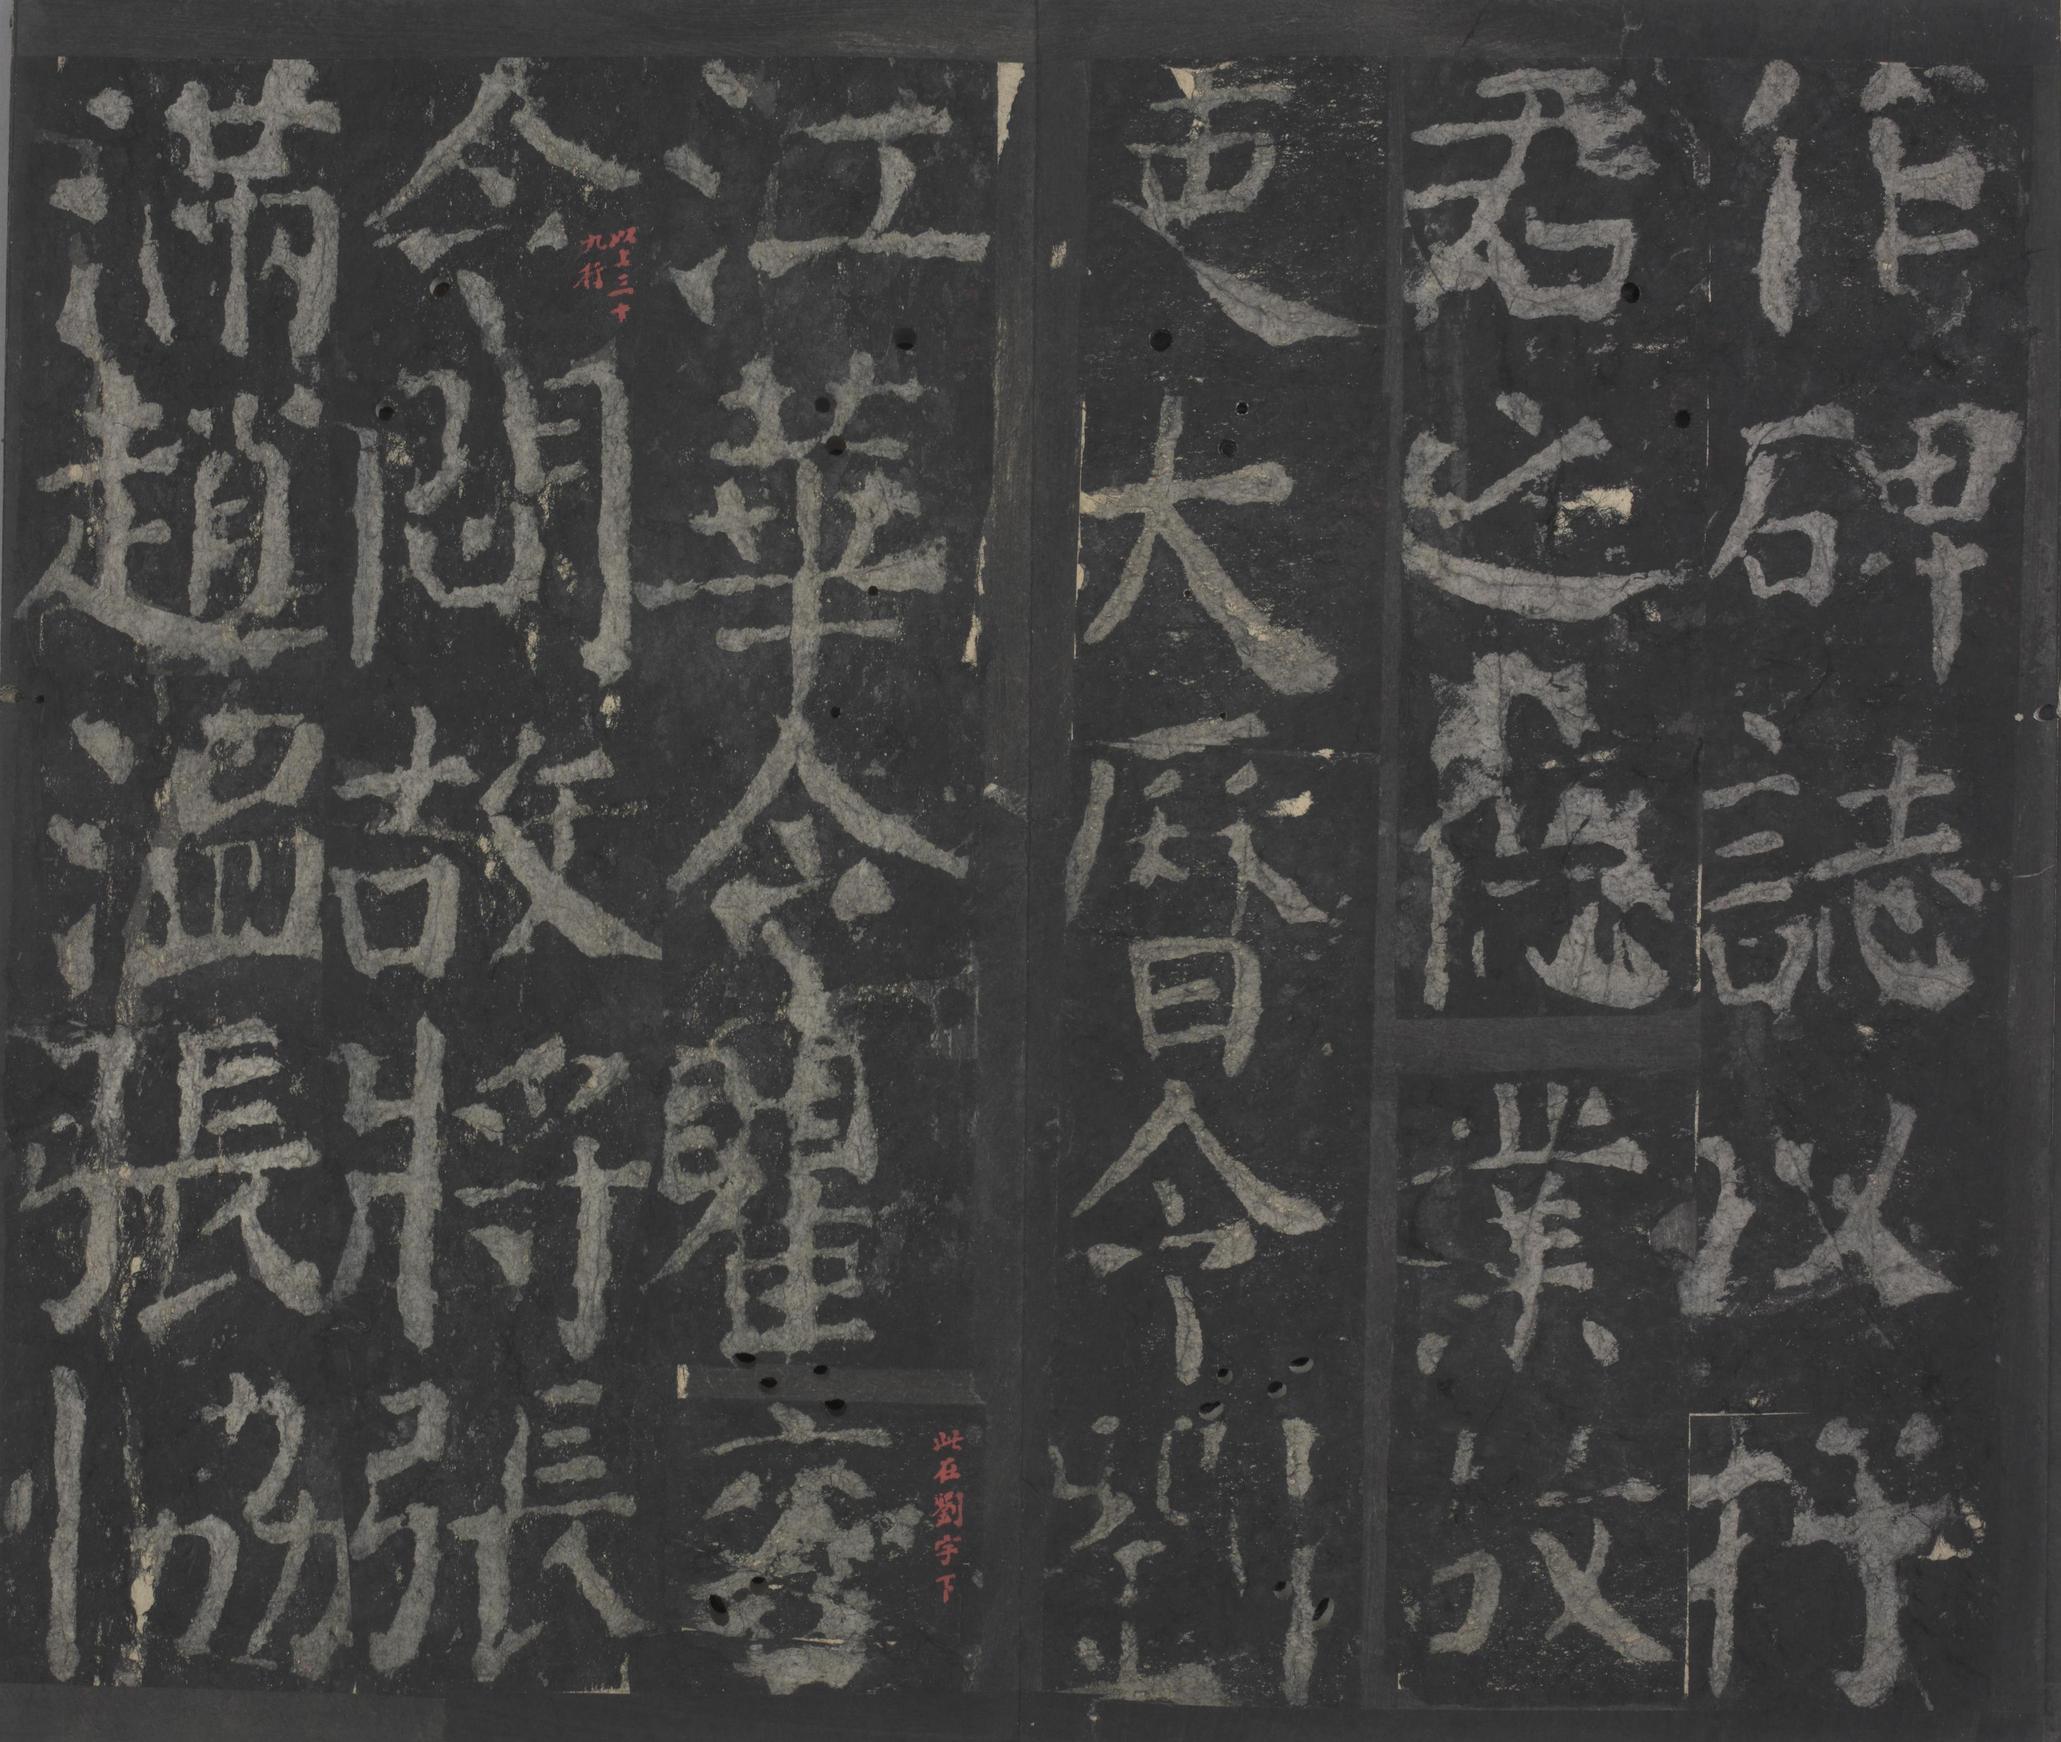 作碑誌以抒
君之德業故
吏大曆令劉
江華令瞿袞
此在劉字下
令問故將張
以上三十
九行
滿趙溫張協